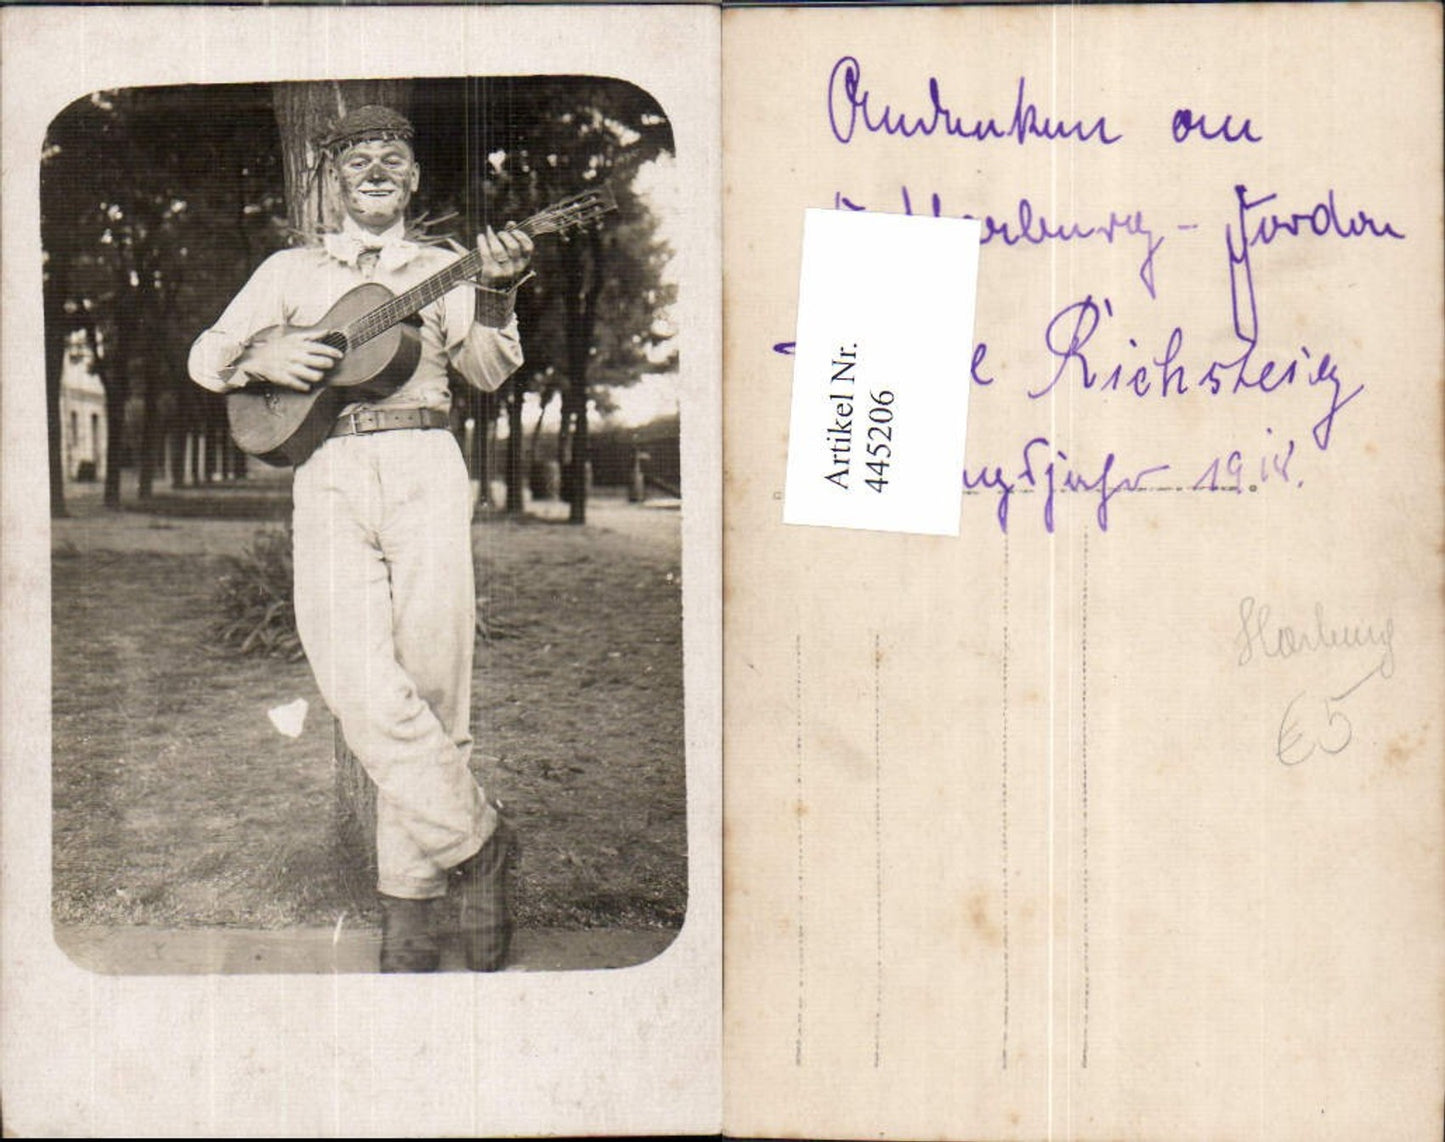 Andenken an
Harburg - Jordan
Richsteig
Kriegsjahr 1918.
Artikel Nr.
445206
Harburg
€5